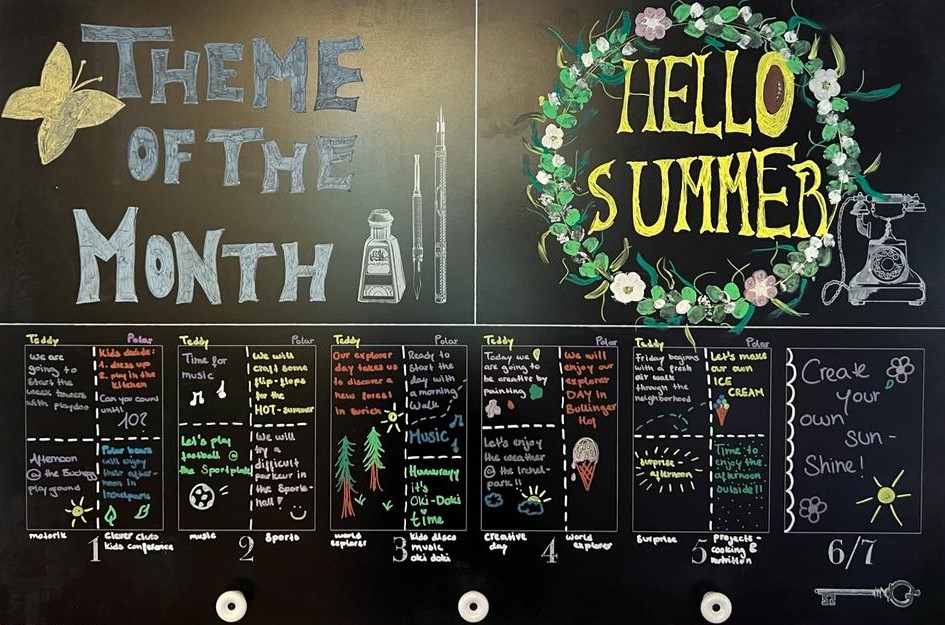 THEME
OF THE
MONTH
HELLO
SUMMER
Teddy
Polar
We are
going to
start the
week towers
with playdoo
Kids decide:
1. dress up
2. play in the
kitchen
Can you count
until
10?
Afternoon
@ the Bucheggg
playground
Polar bears
will enjoy
their after-
noon in
Irchelpark
motorik
clever club
kids conference
1
Teddy
Polar
Time for
music
We will
craft some
flip-flops
for the
HOT-summer
Let's play
football @
the Sportplatz
We will
try a
difficult
parkour in
the Sports-
hall!
music
sports
2
Teddy
Polar
Our explorer
day takes us
to discover a
new forest
in Zurich
Ready to
start the
day with
a morning
walk
Music
Hummrayy
it's
Oki-Doki
time
world
explorer
kids disco
music
oki doki
3
Teddy
Polar
Today we
are going to
be creative by
painting
We will
enjoy our
explorer
DAY in
Bullinger
Hof
Let's enjoy
the weather
@ the Irchel-
park!!
creative
day
world
explorer
4
Teddy
Polar
Friday begins
with a fresh
air walk
through the
neighborhood
Let's make
our own
ICE
CREAM
surprise
afternoon
Time to
enjoy the
afternoon
outside!!
Surprise
projects-
cooking &
nutrition
5
Create
your
own
sun-
Shine!
6/7